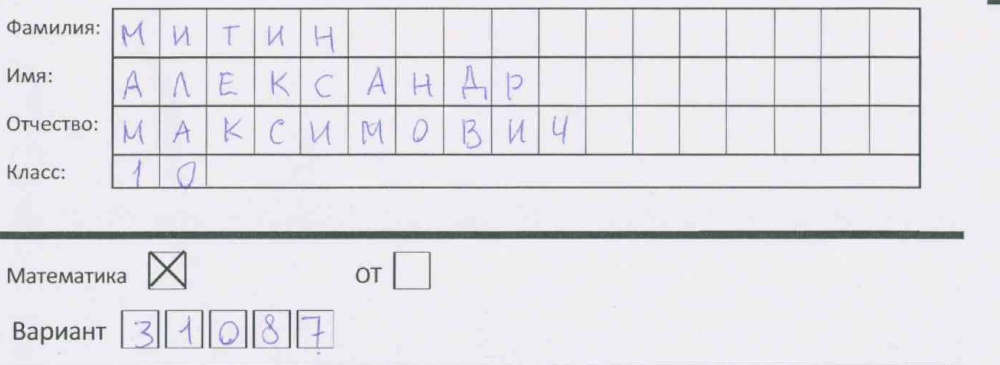 Фамилия: МИТИН
Имя: АЛЕКСАНДР
Отчество: МАКСИМОВИЧ
Класс: 10
Математика ☒ ОТ ☐
Вариант 31087